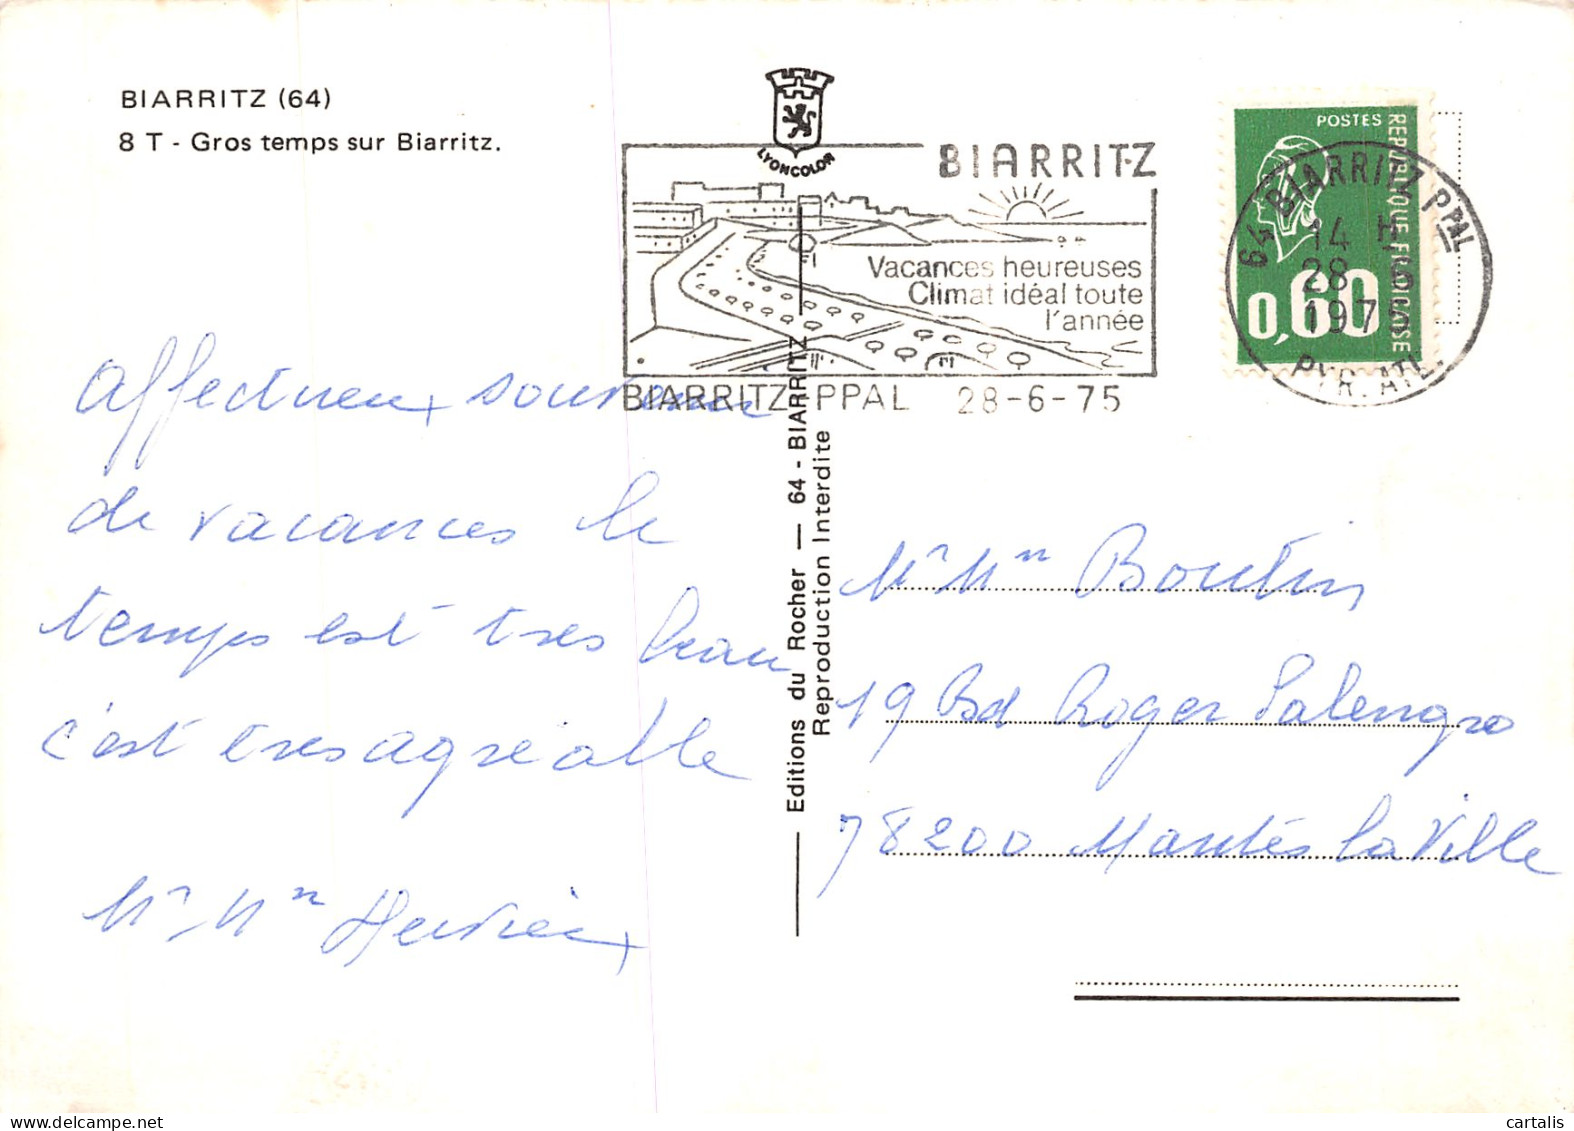 BIARRITZ (64)
8 T - Gros temps sur Biarritz.
LYONCOLOR
BIARRITZ
Vacances heureuses
Climat idéal toute
l'année
BIARRITZ PPAL 28-6-75
POSTES
REPUBLIQUE FRANÇAISE
0,60
64 BIARRITZ PPAL
14 H
28 6
1975
PYR. ATL.
Affectueux souvenir
de vacances le
temps est tres beau
c'est tres agréable
Mr Mme Hervieux
Editions du Rocher — 64 - BIARRITZ
Reproduction Interdite
Mr Mme Boutin
19 Bd Roger Salengro
78200 Mantes la Ville
www.delcampe.net
cartalis